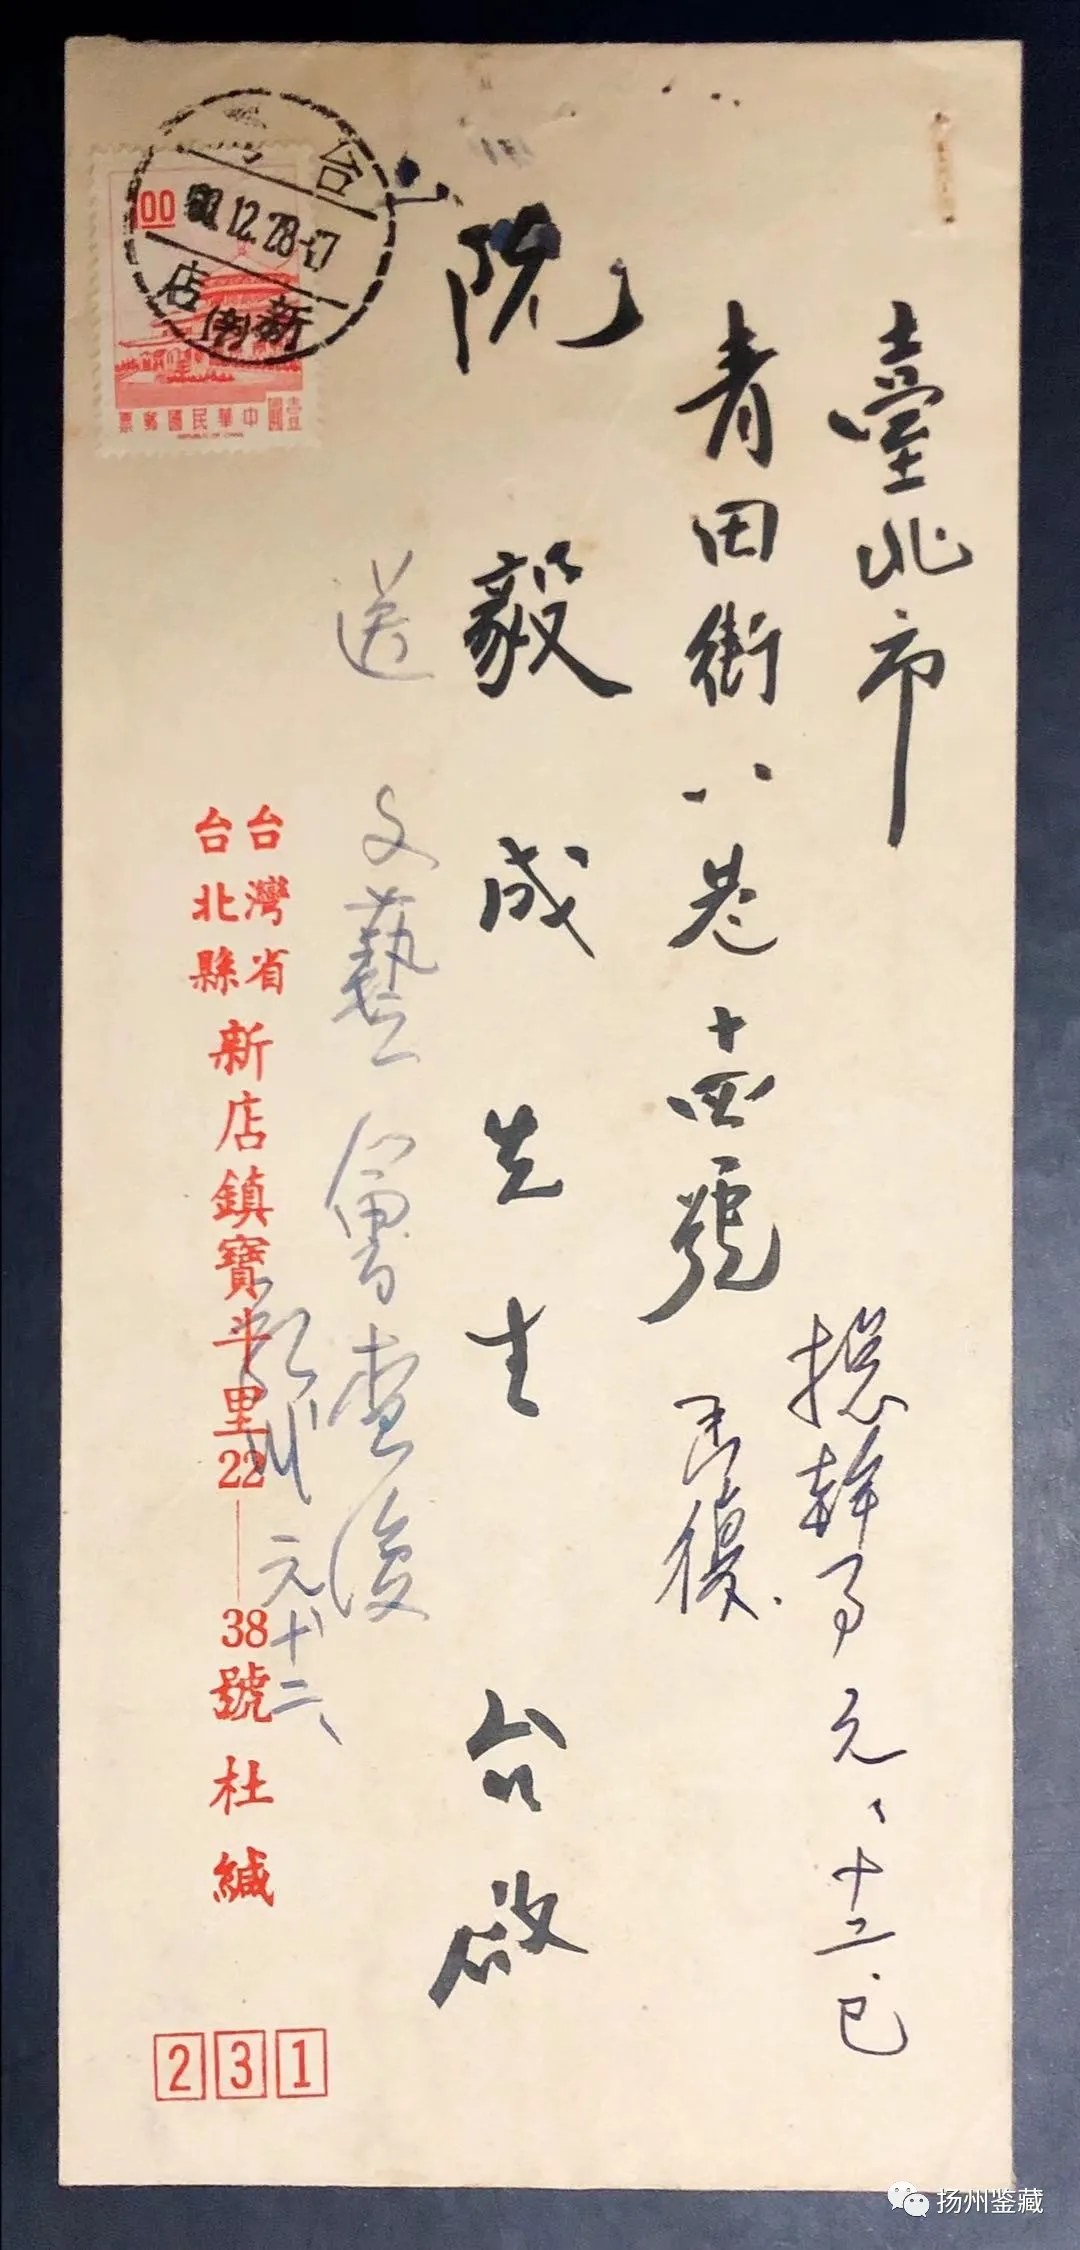 臺北市
青田街八巷十四號
阮毅成先生 台啟
總幹事 元、十二、已復
送文藝會查復
元、十二、
台灣省
台北縣
新店鎮寶斗里22—38號杜緘
231
1.00
壹圓
中華民國郵票
REPUBLIC OF CHINA
台灣
60.12.28-17
新店
扬州鉴藏